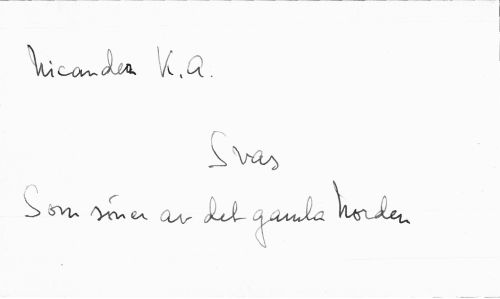 Nicander K.A.
Svas
Som söner av det gamla Norden